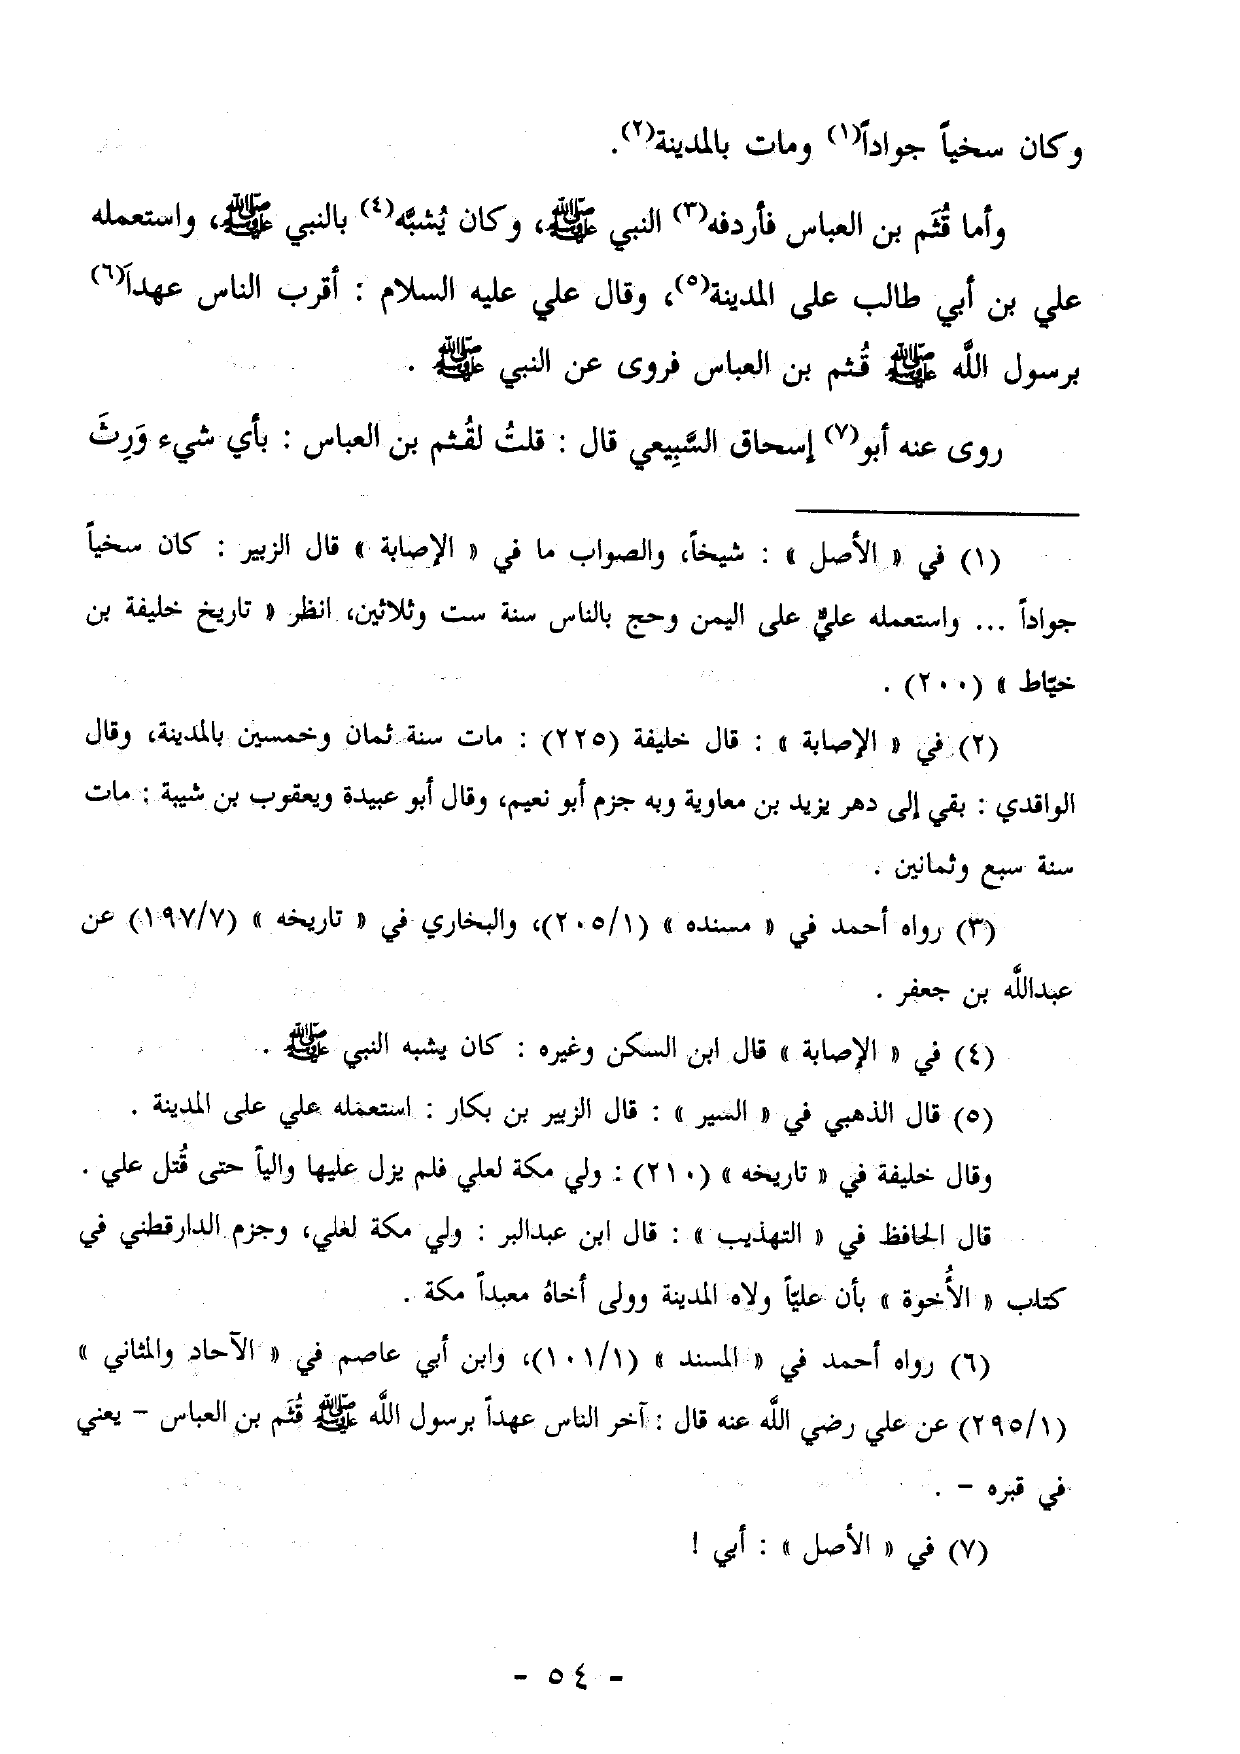 وكان سخياً جواداً(١) ومات بالمدينة(٢).
وأما قُثَم بن العباس فأردفه(٣) النبي ﷺ، وكان يُشبَّه(٤) بالنبي ﷺ، واستعمله
علي بن أبي طالب على المدينة(٥)، وقال علي عليه السلام : أقرب الناس عهداً(٦)
برسول اللَّه ﷺ قُثم بن العباس فروى عن النبي ﷺ .
روى عنه أبو(٧) إسحاق السَّبِيعي قال : قلتُ لقُثم بن العباس : بأي شيء وَرِثَ
(١) في « الأصل » : شيخاً، والصواب ما في « الإصابة » قال الزبير : كان سخياً
جواداً ... واستعمله عليٌّ على اليمن وحج بالناس سنة ست وثلاثين، انظر « تاريخ خليفة بن
خيّاط » (٢٠٠) .
(٢) في « الإصابة » : قال خليفة (٢٢٥) : مات سنة ثمان وخمسين بالمدينة، وقال
الواقدي : بقي إلى دهر يزيد بن معاوية وبه جزم أبو نعيم، وقال أبو عبيدة ويعقوب بن شيبة : مات
سنة سبع وثمانين .
(٣) رواه أحمد في « مسنده » (٢٠٥/١)، والبخاري في « تاريخه » (١٩٧/٧) عن
عبداللَّه بن جعفر .
(٤) في « الإصابة » قال ابن السكن وغيره : كان يشبه النبي ﷺ .
(٥) قال الذهبي في « السير » : قال الزبير بن بكار : استعمله علي على المدينة .
وقال خليفة في « تاريخه » (٢١٠) : ولي مكة لعلي فلم يزل عليها والياً حتى قُتل علي .
قال الحافظ في « التهذيب » : قال ابن عبدالبر : ولي مكة لعلي، وجزم الدارقطني في
كتاب « الأُخوة » بأن عليّاً ولاه المدينة وولى أخاهُ معبداً مكة .
(٦) رواه أحمد في « المسند » (١٠١/١)، وابن أبي عاصم في « الآحاد والمثاني »
(٢٩٥/١) عن علي رضي اللَّه عنه قال : آخر الناس عهداً برسول اللَّه ﷺ قُثَم بن العباس – يعني
في قبره – .
(٧) في « الأصل » : أبي !
- ٥٤ -